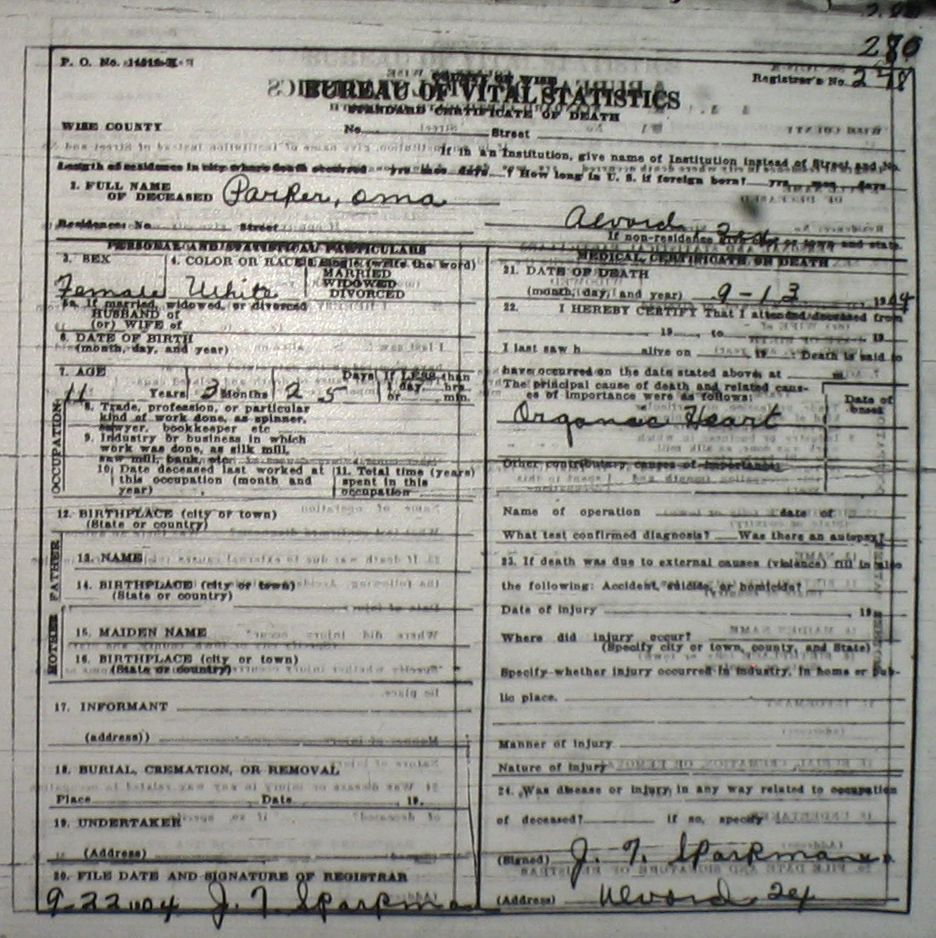 280
P. O. No.
Registrar's No. 278
BUREAU OF VITAL STATISTICS
STANDARD CERTIFICATE OF DEATH
WISE COUNTY
No. Street
If in an Institution, give name of Institution instead of Street and No.
Length of residence in city where death occurred yrs mos days. How long in U. S. if foreign born? yrs mos days
2. FULL NAME
OF DECEASED Parker, Oma
Residence: No. Street Alvord,
If non-residence give or town and state
PERSONAL AND STATISTICAL PARTICULARS
3. SEX 4. COLOR OR RACE Single (write the word)
MARRIED
WIDOWED
DIVORCED
Female White
5a. If married, widowed, or divorced
HUSBAND of
(or) WIFE of
6. DATE OF BIRTH
(month, day, and year)
7. AGE Days If LESS than
1 day hrs
11 Years 3 Months 25 or min.
OCCUPATION
8. Trade, profession, or particular
kind of work done, as spinner,
sawyer, bookkeeper etc
9. Industry or business in which
work was done, as silk mill,
saw mill, bank, etc.
10. Date deceased last worked at
this occupation (month and
year)
11. Total time (years)
spent in this
occupation
12. BIRTHPLACE (city or town)
(State or country)
FATHER
13. NAME
14. BIRTHPLACE (city or town)
(State or country)
MOTHER
15. MAIDEN NAME
16. BIRTHPLACE (city or town)
(State or country)
17. INFORMANT
(address))
18. BURIAL, CREMATION, OR REMOVAL
Place Date 19.
19. UNDERTAKER
(Address)
20. FILE DATE AND SIGNATURE OF REGISTRAR
9-22 J. T. Sparkman
MEDICAL CERTIFICATE OF DEATH
21. DATE OF DEATH
(month, day, and year) 9-13
22. I HEREBY CERTIFY That I attended deceased from
19 , to 19
I last saw h alive on 19 Death is said to
have occurred on the date stated above, at m.
The principal cause of death and related caus-
es of importance were as follows:
Date of
onset
Organic Heart
Other contributary causes of importance:
Name of operation date of
What test confirmed diagnosis? Was there an autopsy?
23. If death was due to external causes (violence) fill in also
the following: Accident, suicide, or homicide?
Date of injury 19
Where did injury occur?
(Specify city or town, county, and State)
Specify whether injury occurred in industry, in home or pub-
lic place.
Manner of injury
Nature of injury
24. Was disease or injury in any way related to occupation
of deceased? if so, specify
(Signed) J. T. Sparkman
(Address) Alvord,